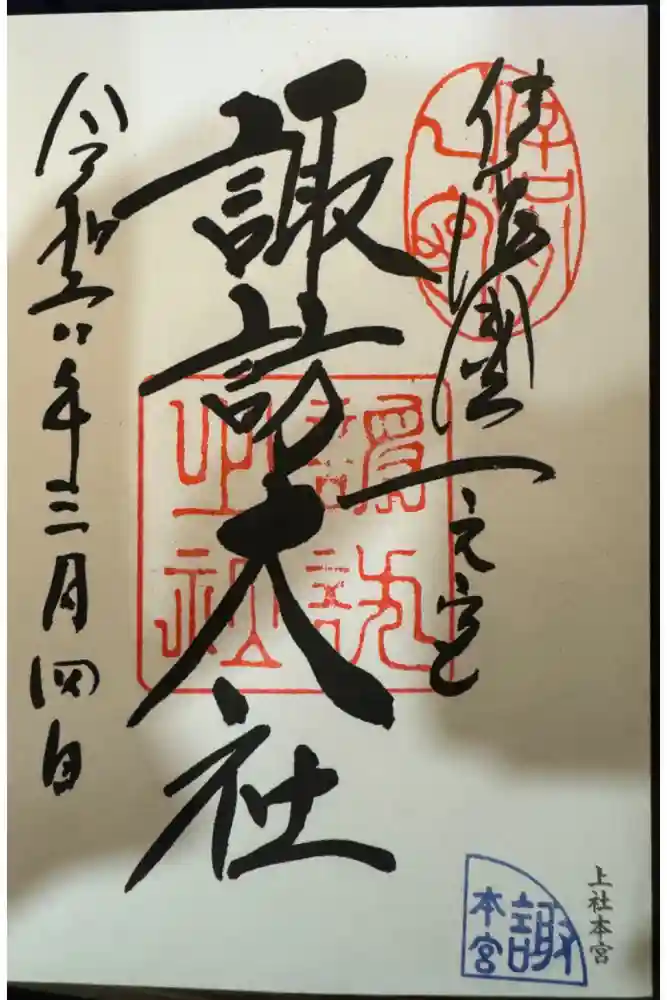 信濃國一之宮
諏訪大社
令和六年三月四日
信州一之宮
諏訪之社
諏
本宮
上社本宮